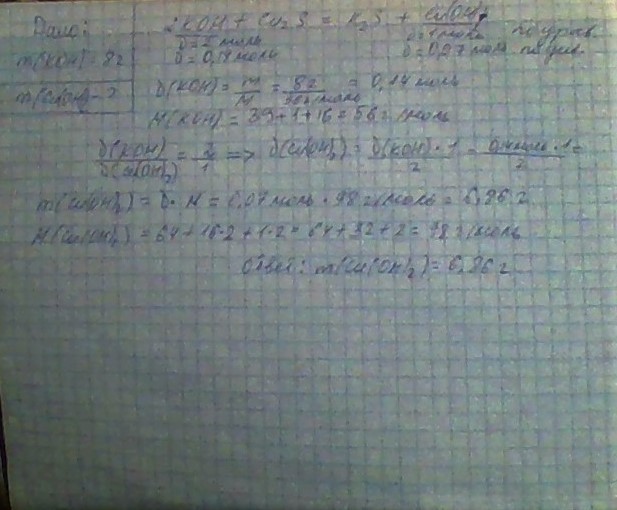 Дано: 2KOH + Cu₂S = K₂S + Cu(OH)₂
υ = 2 моль υ = 1 моль по урав.
m(KOH) = 8г υ = 0,14 моль υ = 0,07 моль
m(Cu(OH)₂) - ? υ(KOH) = m/M = 8г/56г/моль = 0,14 моль
M(KOH) = 39+1+16 = 56 г/моль
υ(KOH)/υ(Cu(OH)₂) = 2/1 => υ(Cu(OH)₂) = υ(KOH)·1/2 = 0,14моль·1/2 =
m(Cu(OH)₂) = υ · M = 0,07 моль · 98 г/моль = 6,86 г
M(Cu(OH)₂) = 64+16·2+1·2 = 64+32+2 = 98 г/моль
Ответ: m(Cu(OH)₂) = 6,86 г